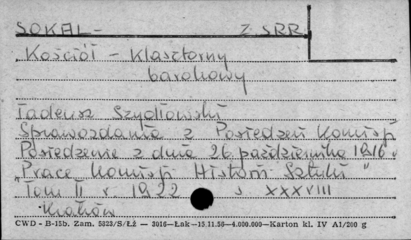 SOKAL - Z. SRR.
Kościół - Klasztorny
barokowy
Tadeusz Szydłowski
Sprawozdania z Posiedzeń Komisji
Posiedzenie z dnia 26 października 1916 r.
"Prace Komisji Historii Sztuki"
Tom II r. 1922 s XXXVIII
Kraków
CWD - B-15b. Zam. 5823/S/Łź — 3016—Łak—15.11.50—4.000.000—Karton kl. IV A1/200 g